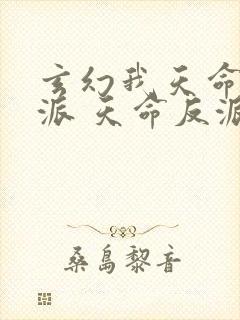 玄幻我天命
派 天命反派
桑岛黎音